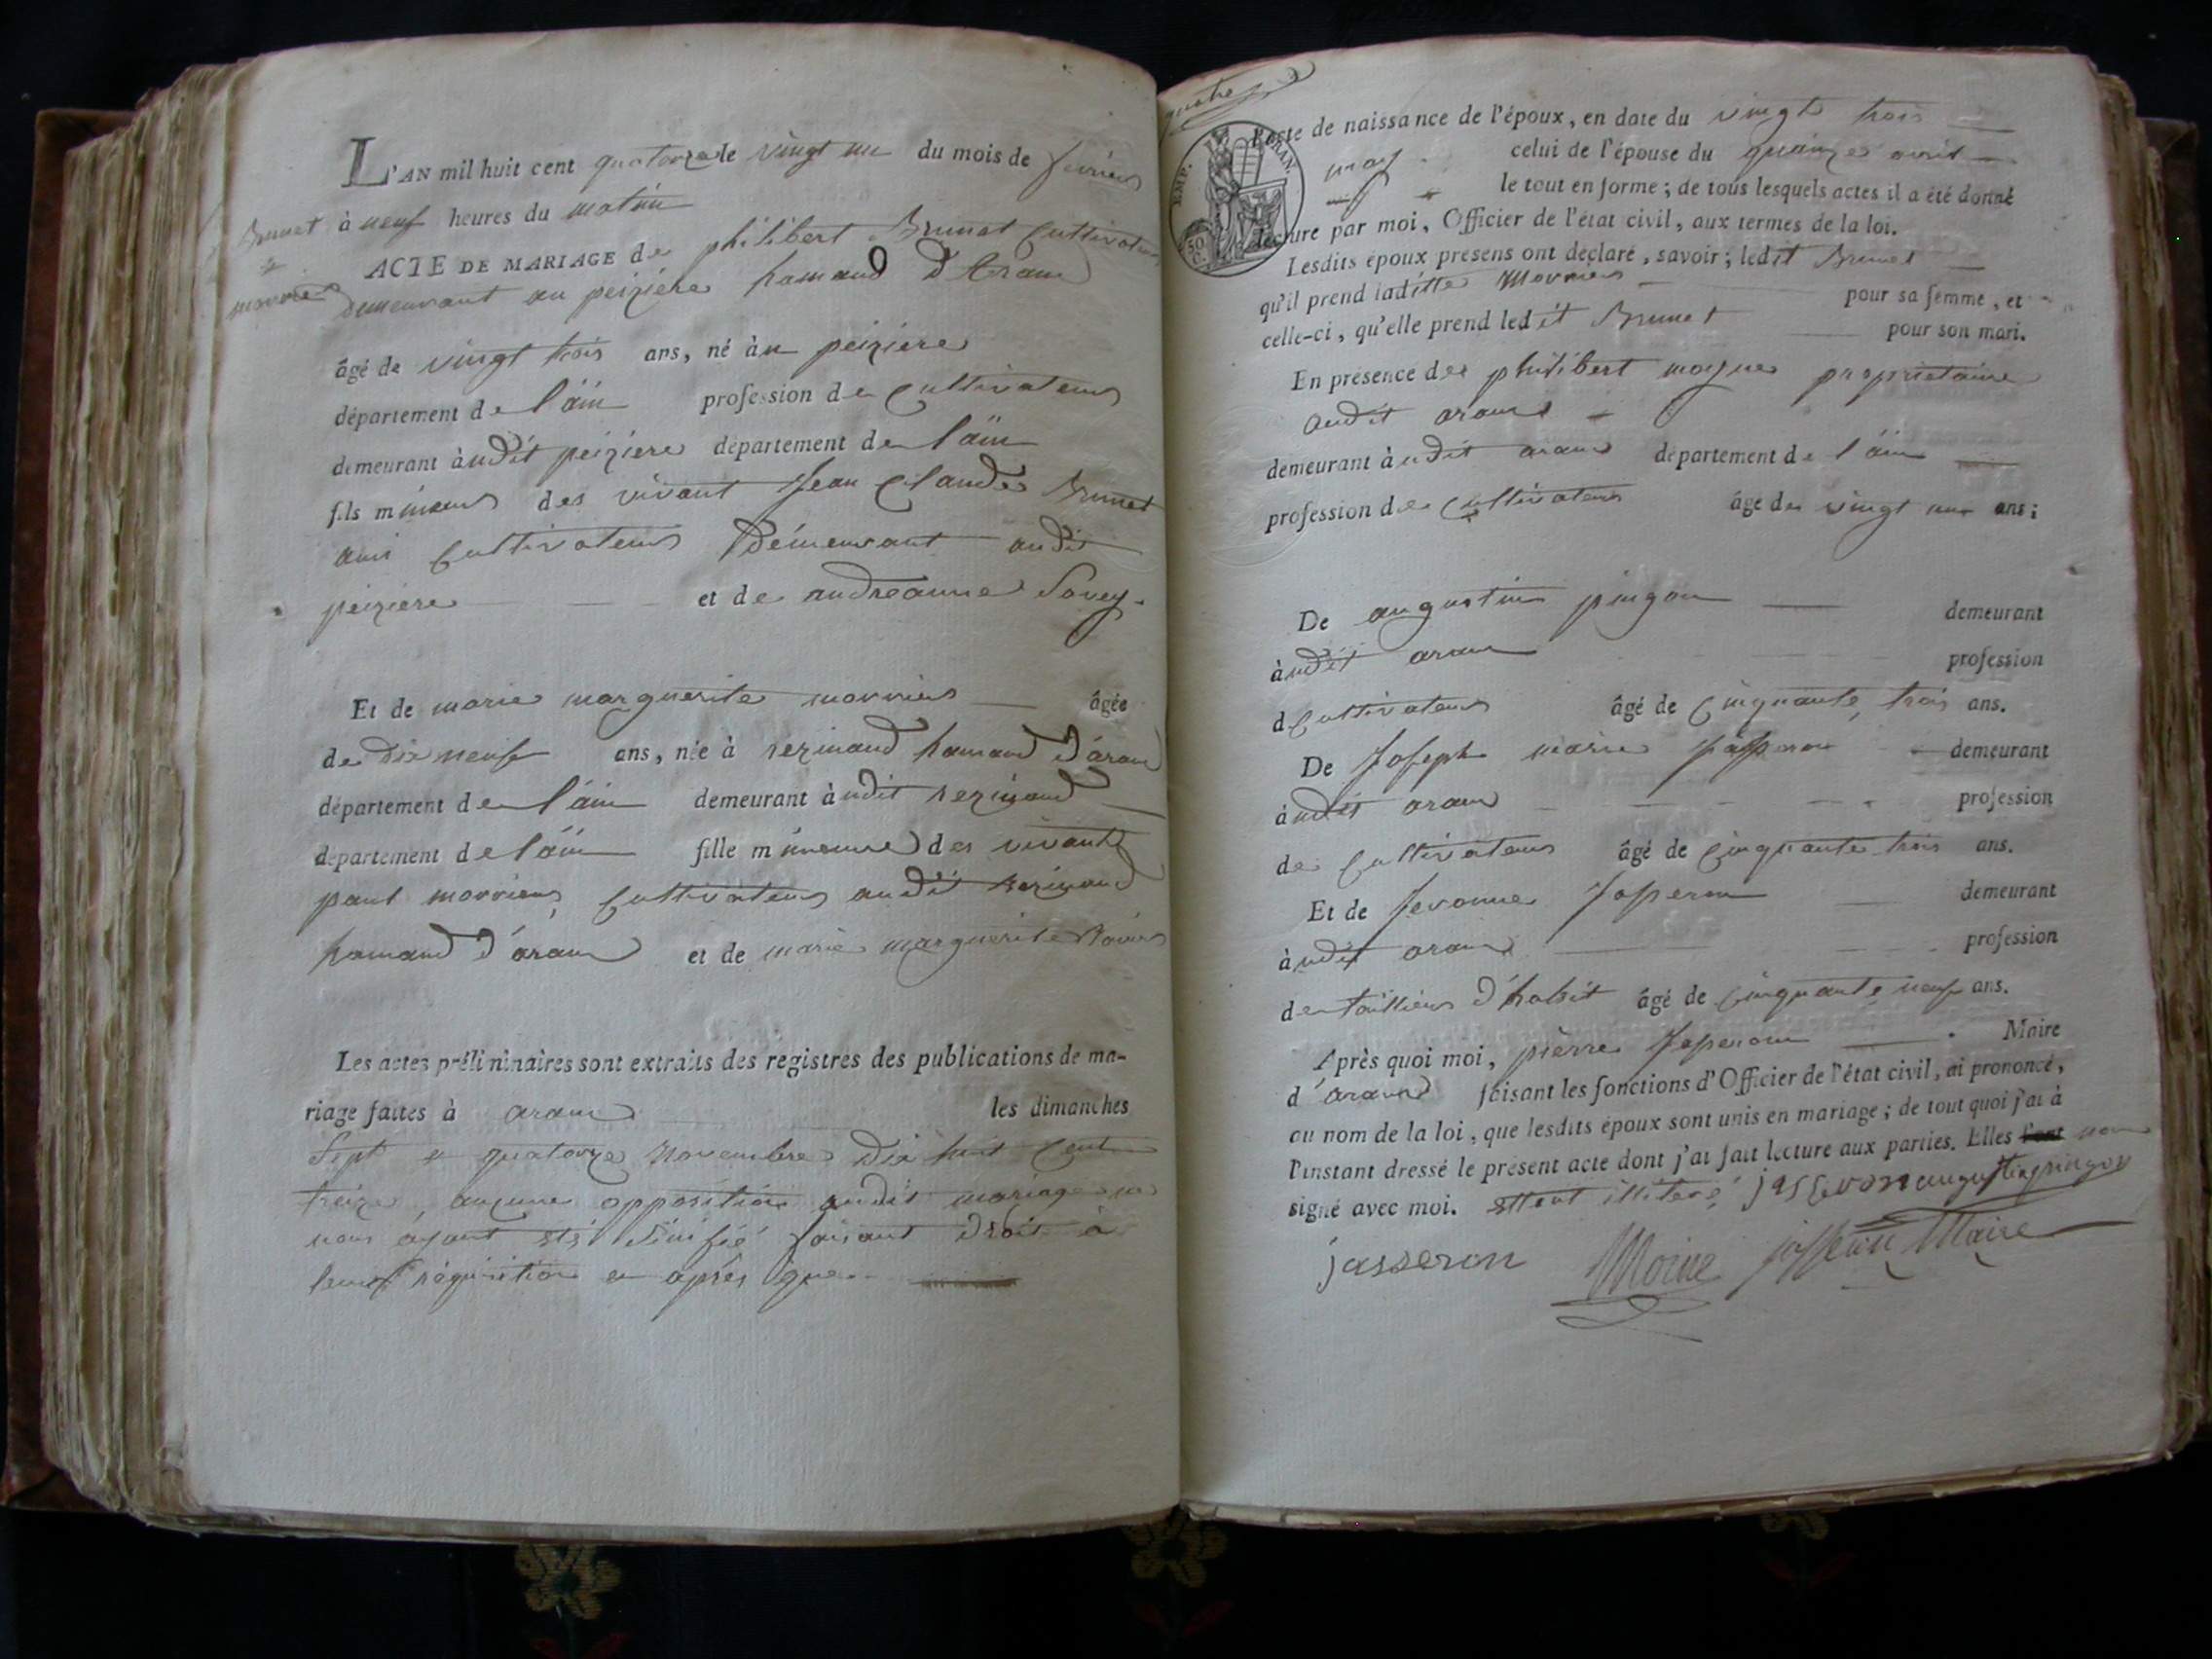 L'AN mil huit cent quatorze le vingt un du mois de fevrier
Brunet à neuf heures du matin
&
ACTE DE MARIAGE de philibert Brunet Cultivateur
morrier demeurant au peiziere hamaud d'Arane
âgé de vingt trois ans, né à u peiziere
département de l'ain profession de Cultivateur
demeurant à udit peiziere département de l'ain
fils mineur des vivant Jean Claude Brunet
aussi Cultivateur demeurant audit
peiziere et de andreanne Savey.
Et de marie marguerite morrier âgée
de dix neuf ans, née à rezinand hamaud d'arane
département de l'ain demeurant à udit rezinand
département de l'ain fille mineure des vivants
paul morrier, Cultivateur audit rezinand
hamaud d'arane et de marie marguerite
Les actes préliminaires sont extraits des registres des publications de ma-
riage faites à arane les dimanches
Sept et quatorze Novembre dix huit Cent
treize, aucune opposition audit mariage ne
nous ayant été Sinifié faisant droit à
leur réquisition et après que
quatre
EMP. FRAN.
50 C.
l'acte de naissance de l'époux, en date du vingt trois
may celui de l'épouse du quinze avril
le tout en forme ; de tous lesquels actes il a été donné
lecture par moi, Officier de l'état civil, aux termes de la loi.
Lesdits époux présens ont déclaré, savoir ; ledit Brunet
qu'il prend laditte Morrier pour sa femme, et
celle-ci, qu'elle prend ledit Brunet pour son mari.
En présence de philibert moyne proprietaire
audit arane
demeurant à udit arane département de l'ain
profession de Cultivateur âgé de vingt un ans ;
De augustin pingon demeurant
à udit arane profession
d Cultivateur âgé de Cinquante trois ans.
De Joseph marie Jasseron demeurant
à udit arane profession
de Cultivateur âgé de Cinquante trois ans.
Et de Jeronne Jasseron demeurant
à udit arane profession
de taillieur d'habit âgé de Cinquante neuf ans.
Après quoi moi, pierre Jasseron Maire
d'arane faisant les fonctions d'Officier de l'état civil, ai prononcé,
au nom de la loi, que lesdits époux sont unis en mariage ; de tout quoi j'ai à
l'instant dressé le présent acte dont j'ai fait lecture aux parties. Elles l'ont non
signé avec moi. Ettent illiteré jasseron augustin pingon
jasseron Moine jasseron Maire